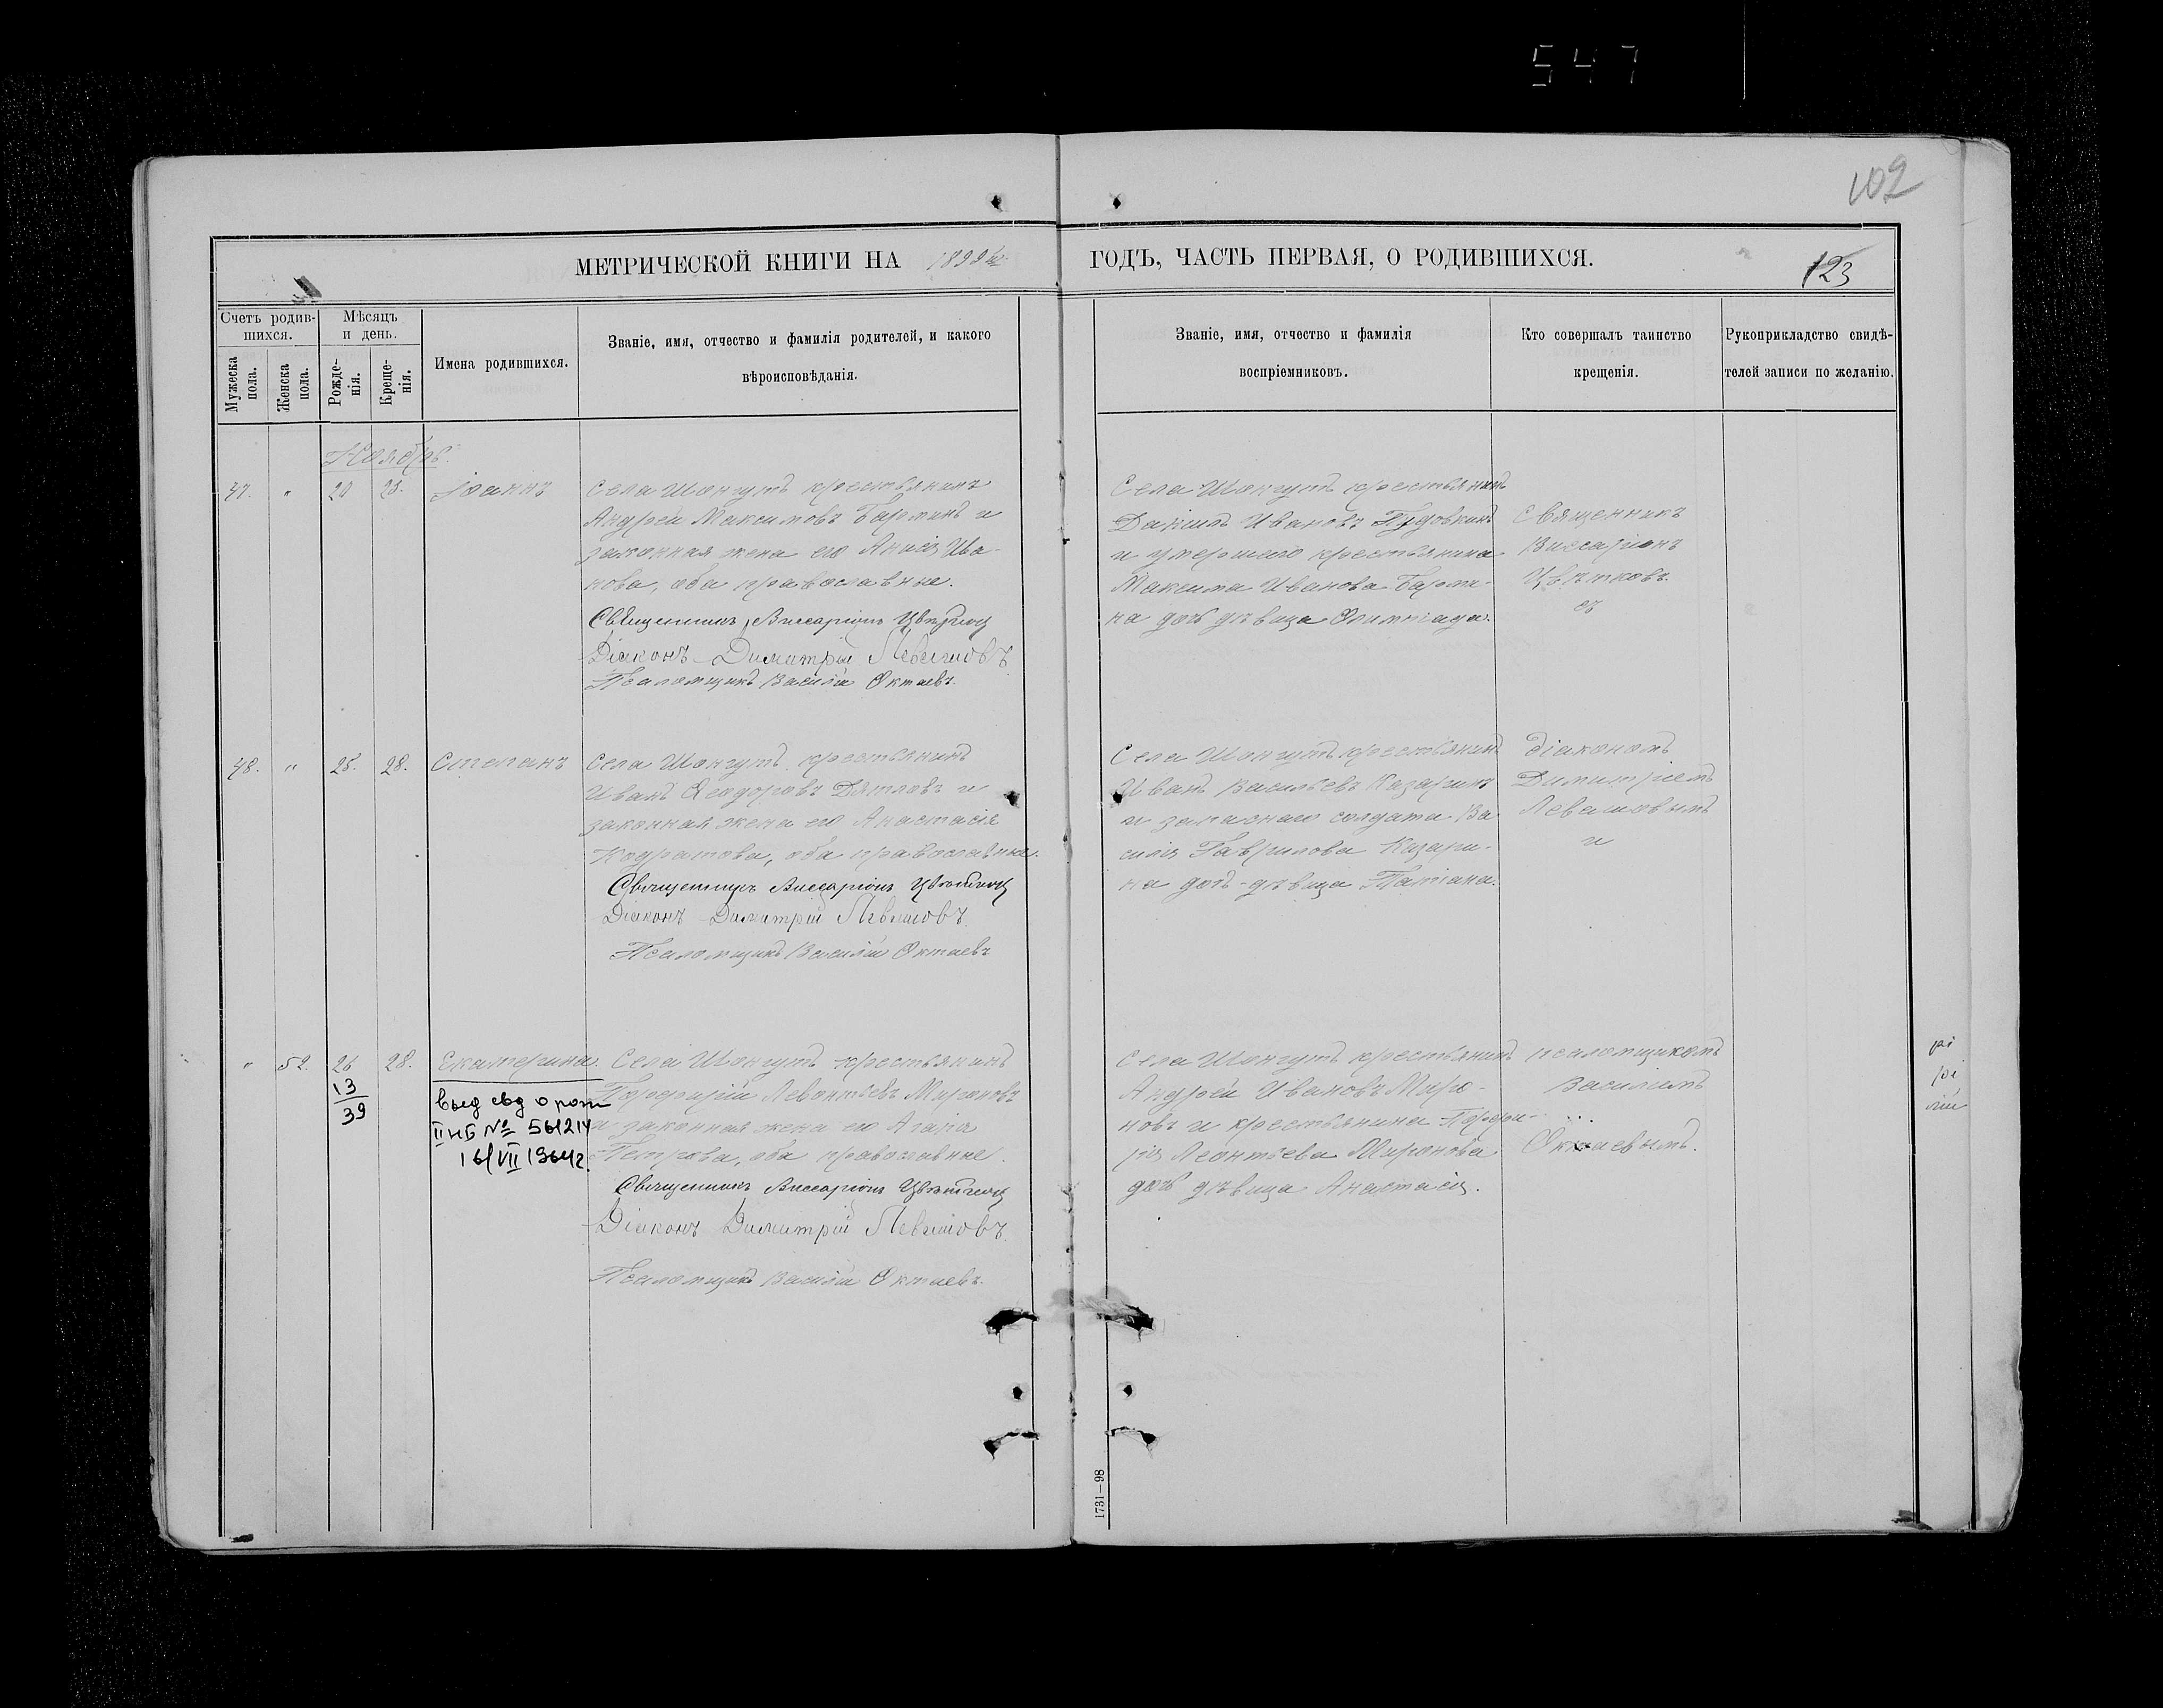 547
102
МЕТРИЧЕСКОЙ КНИГИ НА 1899 ГОДЪ, ЧАСТЬ ПЕРВАЯ, О РОДИВШИХСЯ.
123
Счетъ родив-
шихся.
Мужеска
пола.
Женска
пола.
Мѣсяцъ
и день.
Рожде-
нія.
Креще-
нія.
Имена родившихся.
Званіе, имя, отчество и фамилія родителей, и какого
вѣроисповѣданія.
Званіе, имя, отчество и фамилія
воспріемниковъ.
Кто совершалъ таинство
крещенія.
Рукоприкладство свидѣ-
телей записи по желанію.
Ноябрь.
47. " 20 Іоаннъ
Села Шонгутъ крестьянинъ
Андрей Максимовъ и
законная жена его Ива-
нова, оба православные.
Священникъ Виссаріонъ Цвѣтковъ
Діаконъ Димитрій Левашовъ
Псаломщикъ Василій Октаевъ.
Села Шонгутъ крестьянинъ
Даніилъ Ивановъ Гудовкинъ
и умершаго крестьянина
Максима Иванова
дѣвица Олимпіада.
Священникъ
Виссаріонъ
Цвѣтковъ
съ
48. " 25. 28. Степанъ
Села Шонгутъ крестьянинъ
Иванъ Ѳеодоровъ Дятловъ и
законная жена его Анастасія
Кодратова, оба православные.
Священникъ Виссаріонъ Цвѣтковъ
Діаконъ Димитрій Левашовъ.
Псаломщикъ Василій Октаевъ
Села Шонгутъ крестьянинъ
Иванъ Васильевъ Казаринъ
и запаснаго солдата Ва-
силія Гаврилова Казари-
на дочь-дѣвица Татіана.
Діакономъ
Димитріемъ
Левашовымъ
и
" 52. 26 28. Екатерина.
13
39
Выд свд о рож
II НБ № 561214
16/VII 1964г.
Села Шонгутъ крестьянинъ
Порфирій Левонтьевъ Мироновъ
и законная жена его Агапія
Петрова, оба православные.
Священникъ Виссаріонъ Цвѣтковъ
Діаконъ Димитрій Левашовъ.
Псаломщикъ Василій Октаевъ.
Села Шонгутъ крестьянинъ
Андрей Ивановъ Миро-
новъ и крестьянина Порфи-
рія Леонтьева Миронова
дочь дѣвица Анастасія.
псаломщикомъ
Василіемъ
Октаевымъ.
1731—98